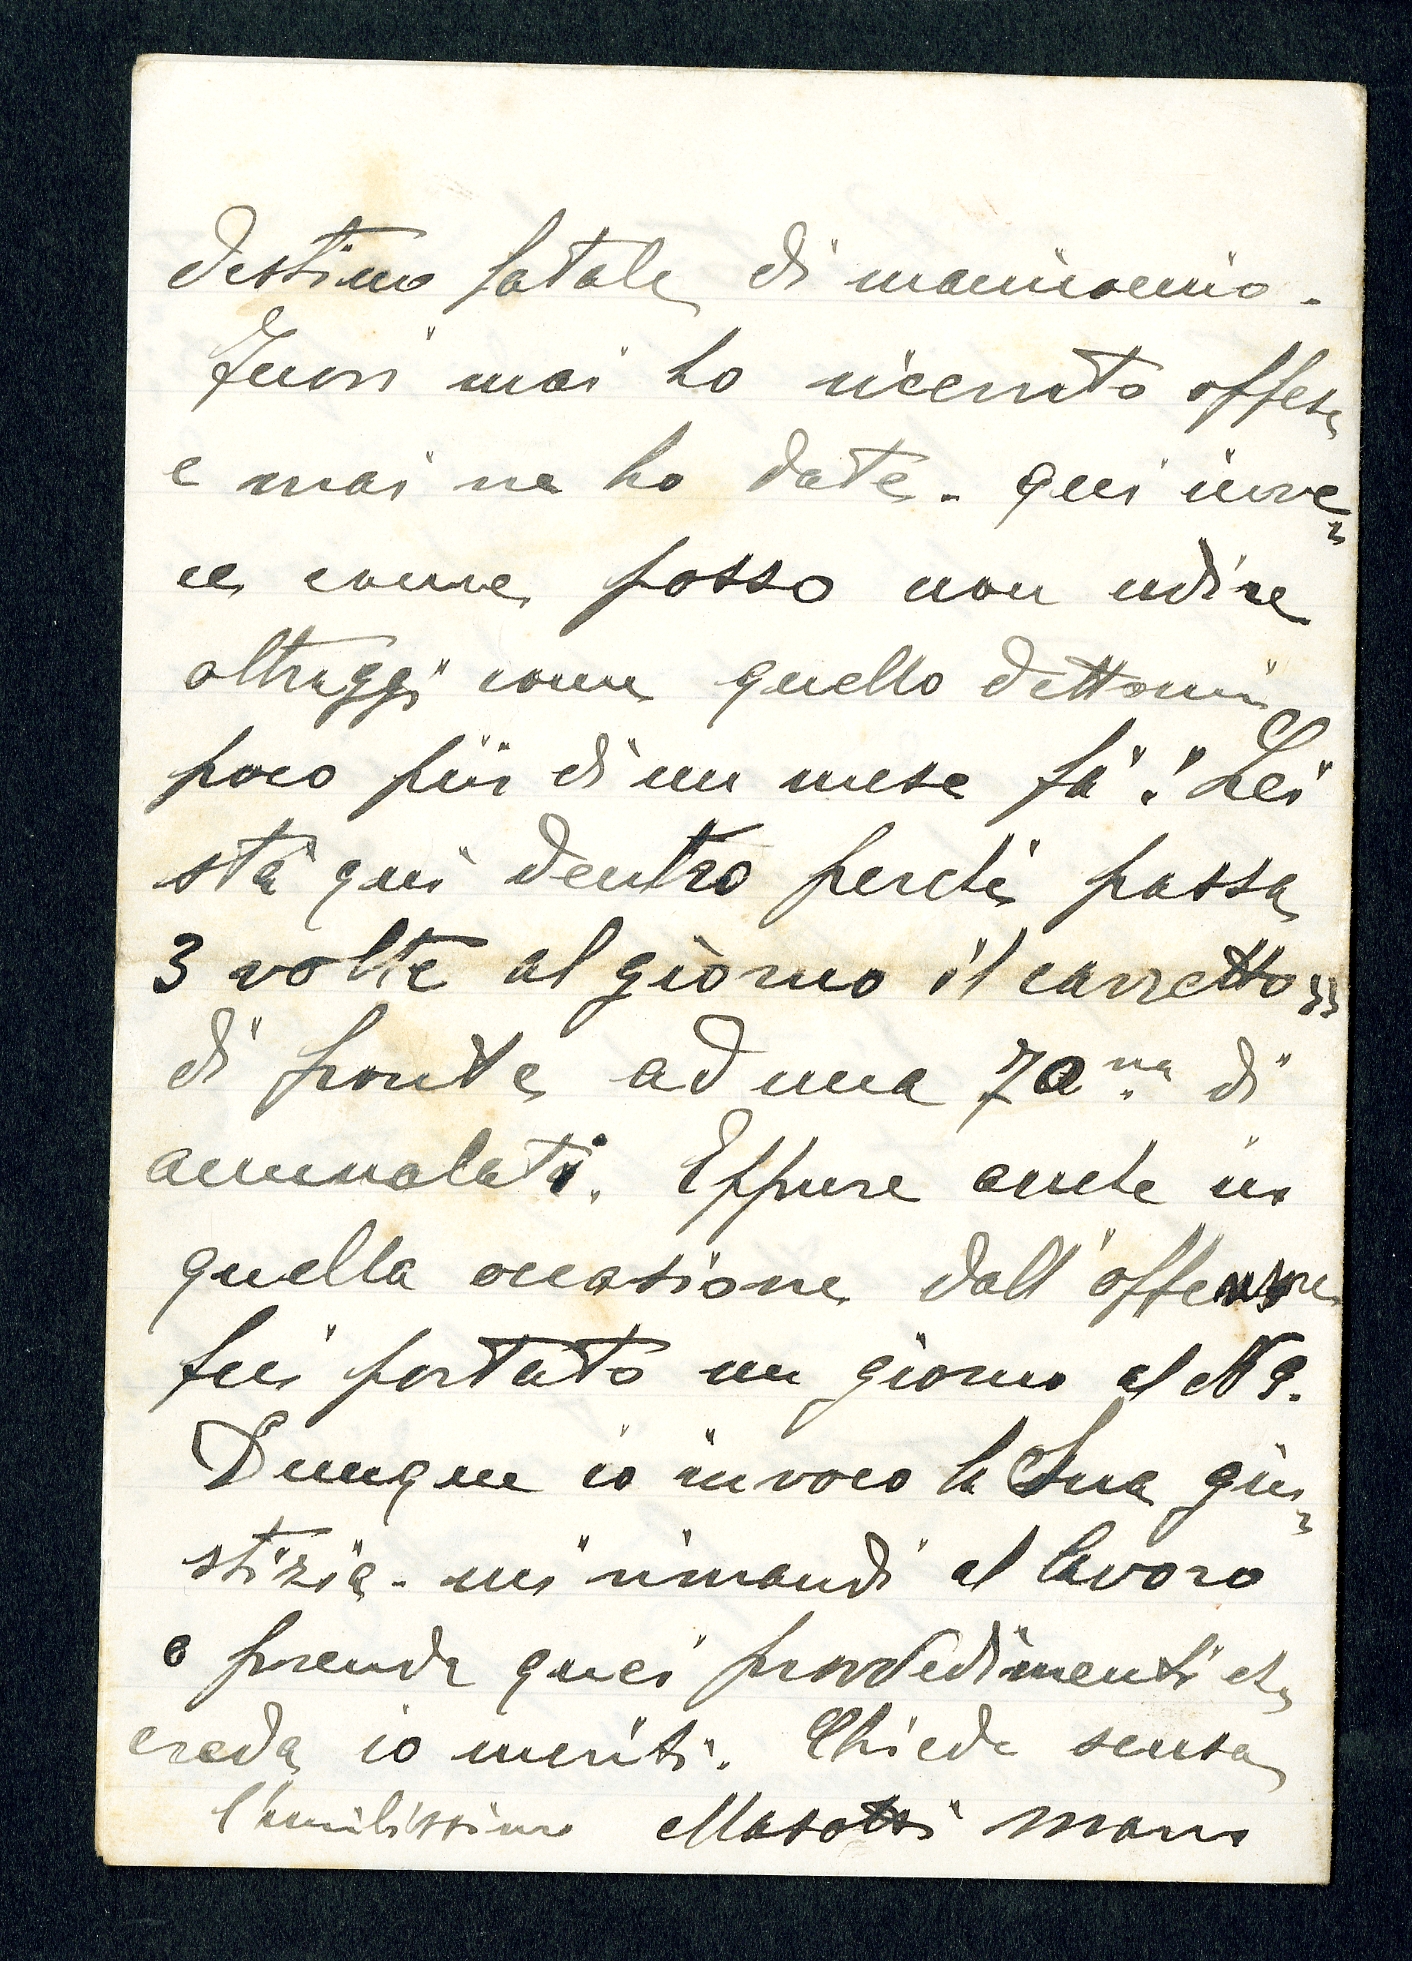 destino fatale di manicomio.
Fuori mai ho ricevuto offese
e mai ne ho date. qui inve=
ce come posso non udire
oltraggi come quello dettomi
poco più di un mese fa: "Lei
sta qui dentro perchè passa
3 volte al giorno il carretto"
di fronte ad una 70na di
ammalati. Eppure anche in
quella occasione dall'offensore
fui portato un giorno al N 9.
Dunque io invoco la Sua giu=
stizia. mi rimandi al lavoro
e prenda quei provvedimenti che
creda io meriti. Chiedo scusa
l'umilissimo Masotti Mario